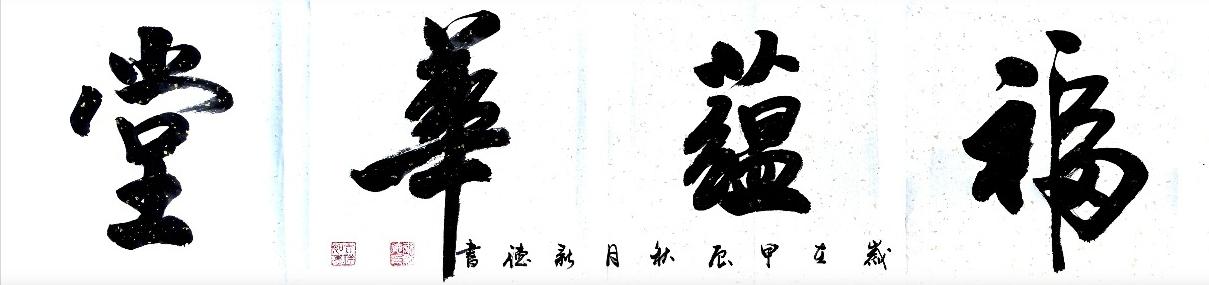 福蘊華堂
歲在甲辰秋月新德書